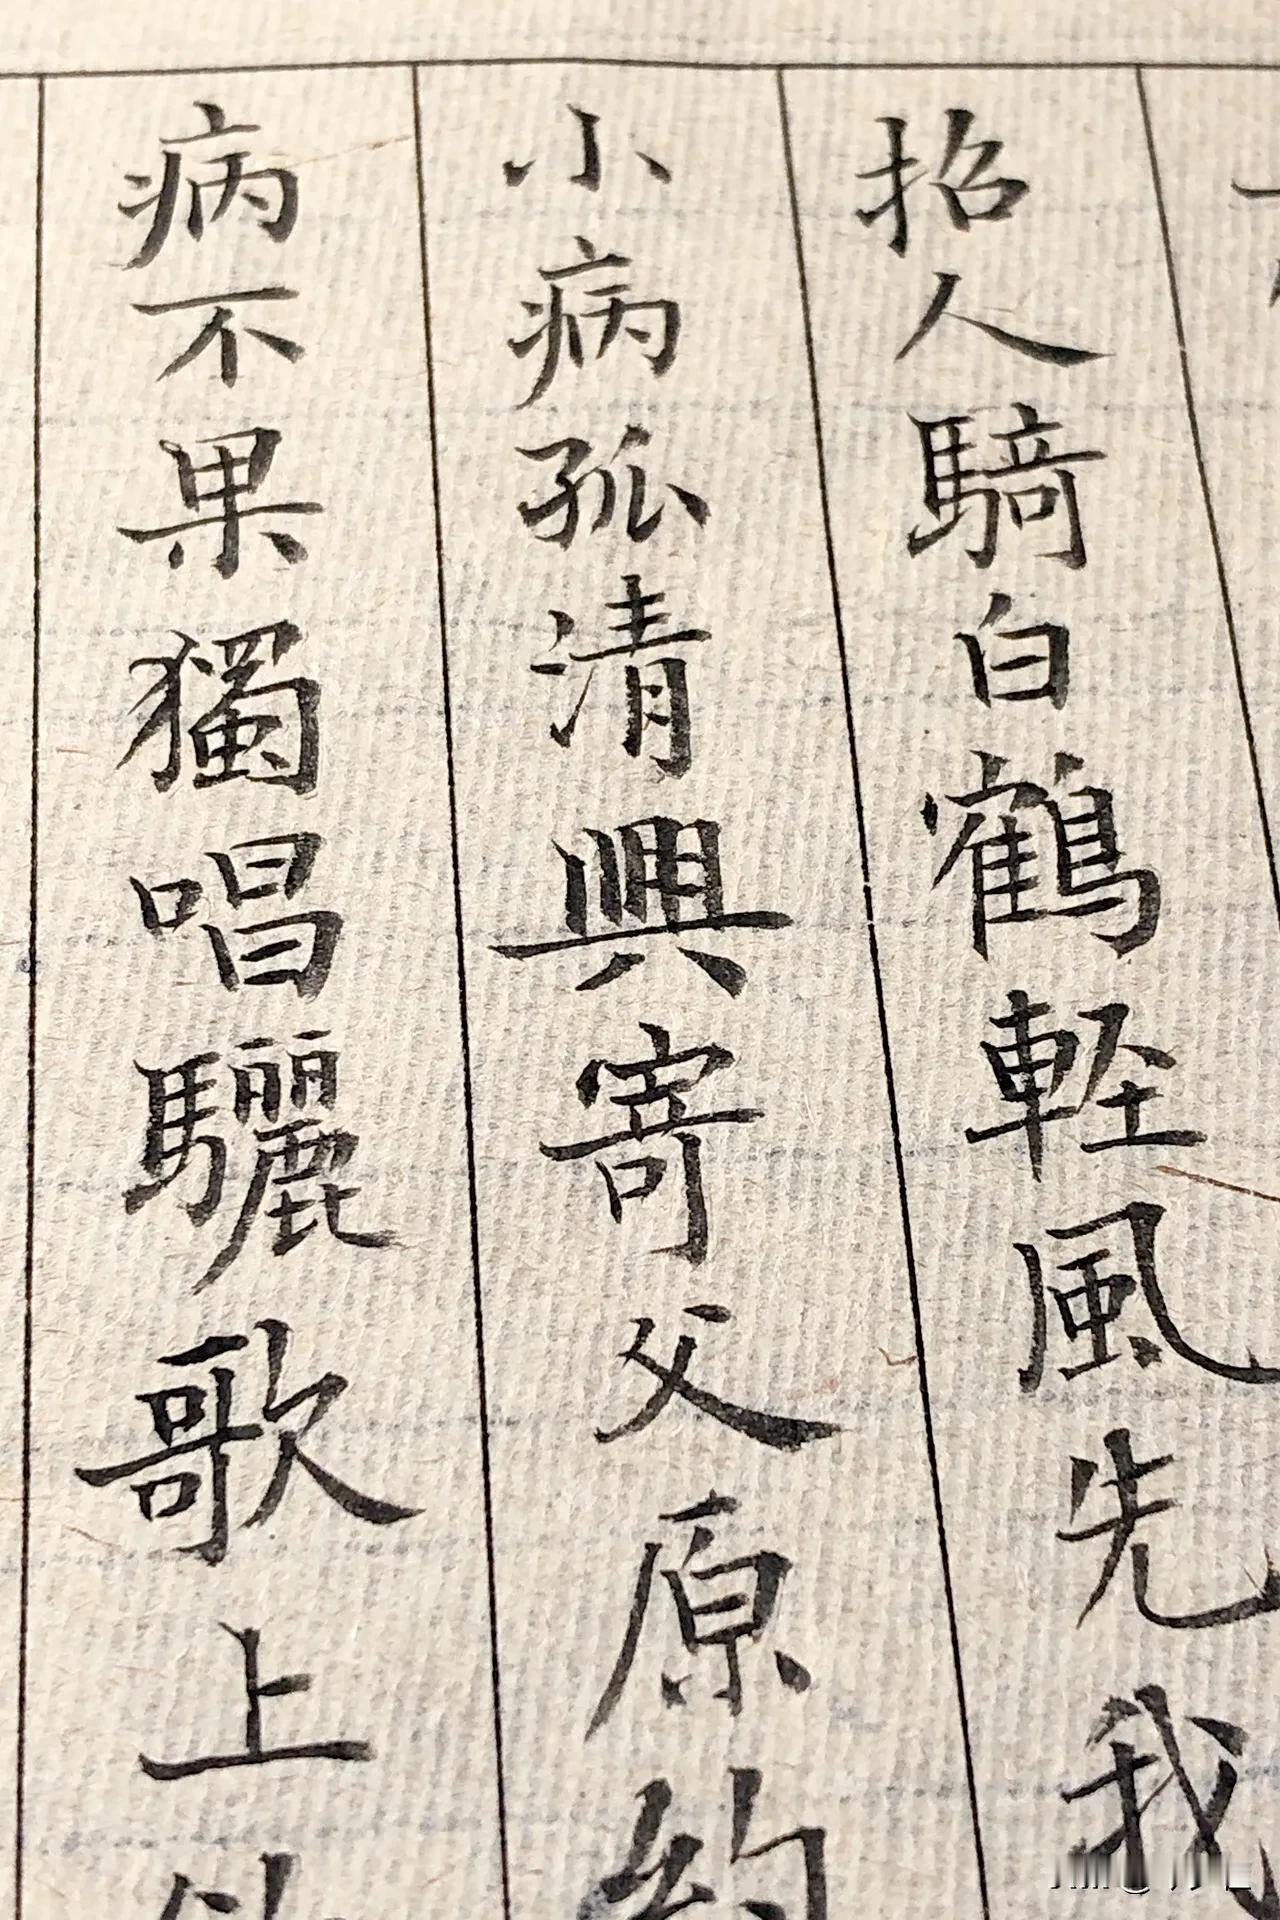 招人騎白鶴軽風先我
小病孤清興寄父原約
病不果獨唱驪歌上